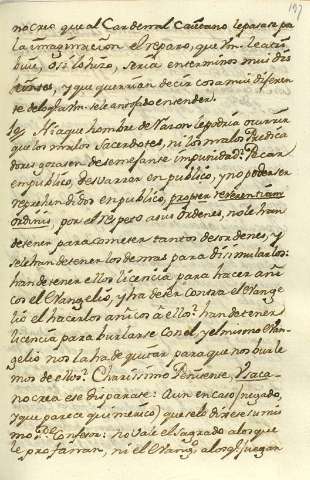 197
no crea que al Cardenal Cayetano le pasase pa
la imaginacion el reparo, que Vm. le atri-
buie, o si lo hizo, seria en terminos mui dis
tintos, y que querrian decir cosa mui diferen
te de lo que a Vm. se le antojò de entender.
19 Ni a que hombre de razon le podia ocurrir
que los malos Sacerdotes, ni los malos Predica
dores gozasen de semejante impunidad? Pecar
en publico, desvarrar en publico, y no poder ser
reprehendidos en publico, propter reverentiam
ordinis, por el respeto a sus ordenes, no le han
de tener para cometer tantos desordenes, y
se le han de tener los demas para disimularlos:
han de tener ellos licencia para hacer añi
cos el Evangelio, y ha de ser contra el Evange
lio el hacerlos añicos a ellos: han de tener
licencia para burlarse con el, y el mismo Evan
gelio nos la ha de quitar para que nos burle
mos de ellos. Charissimo Penitente, Vsa ca
no crea ese disparate: Aun en caso (negado,
y que parece quimerico) que se lo diere su mis
mo Pe. Confesor: no vale el sagrado a los que
le profanan, ni el Evangº. a los que juegan